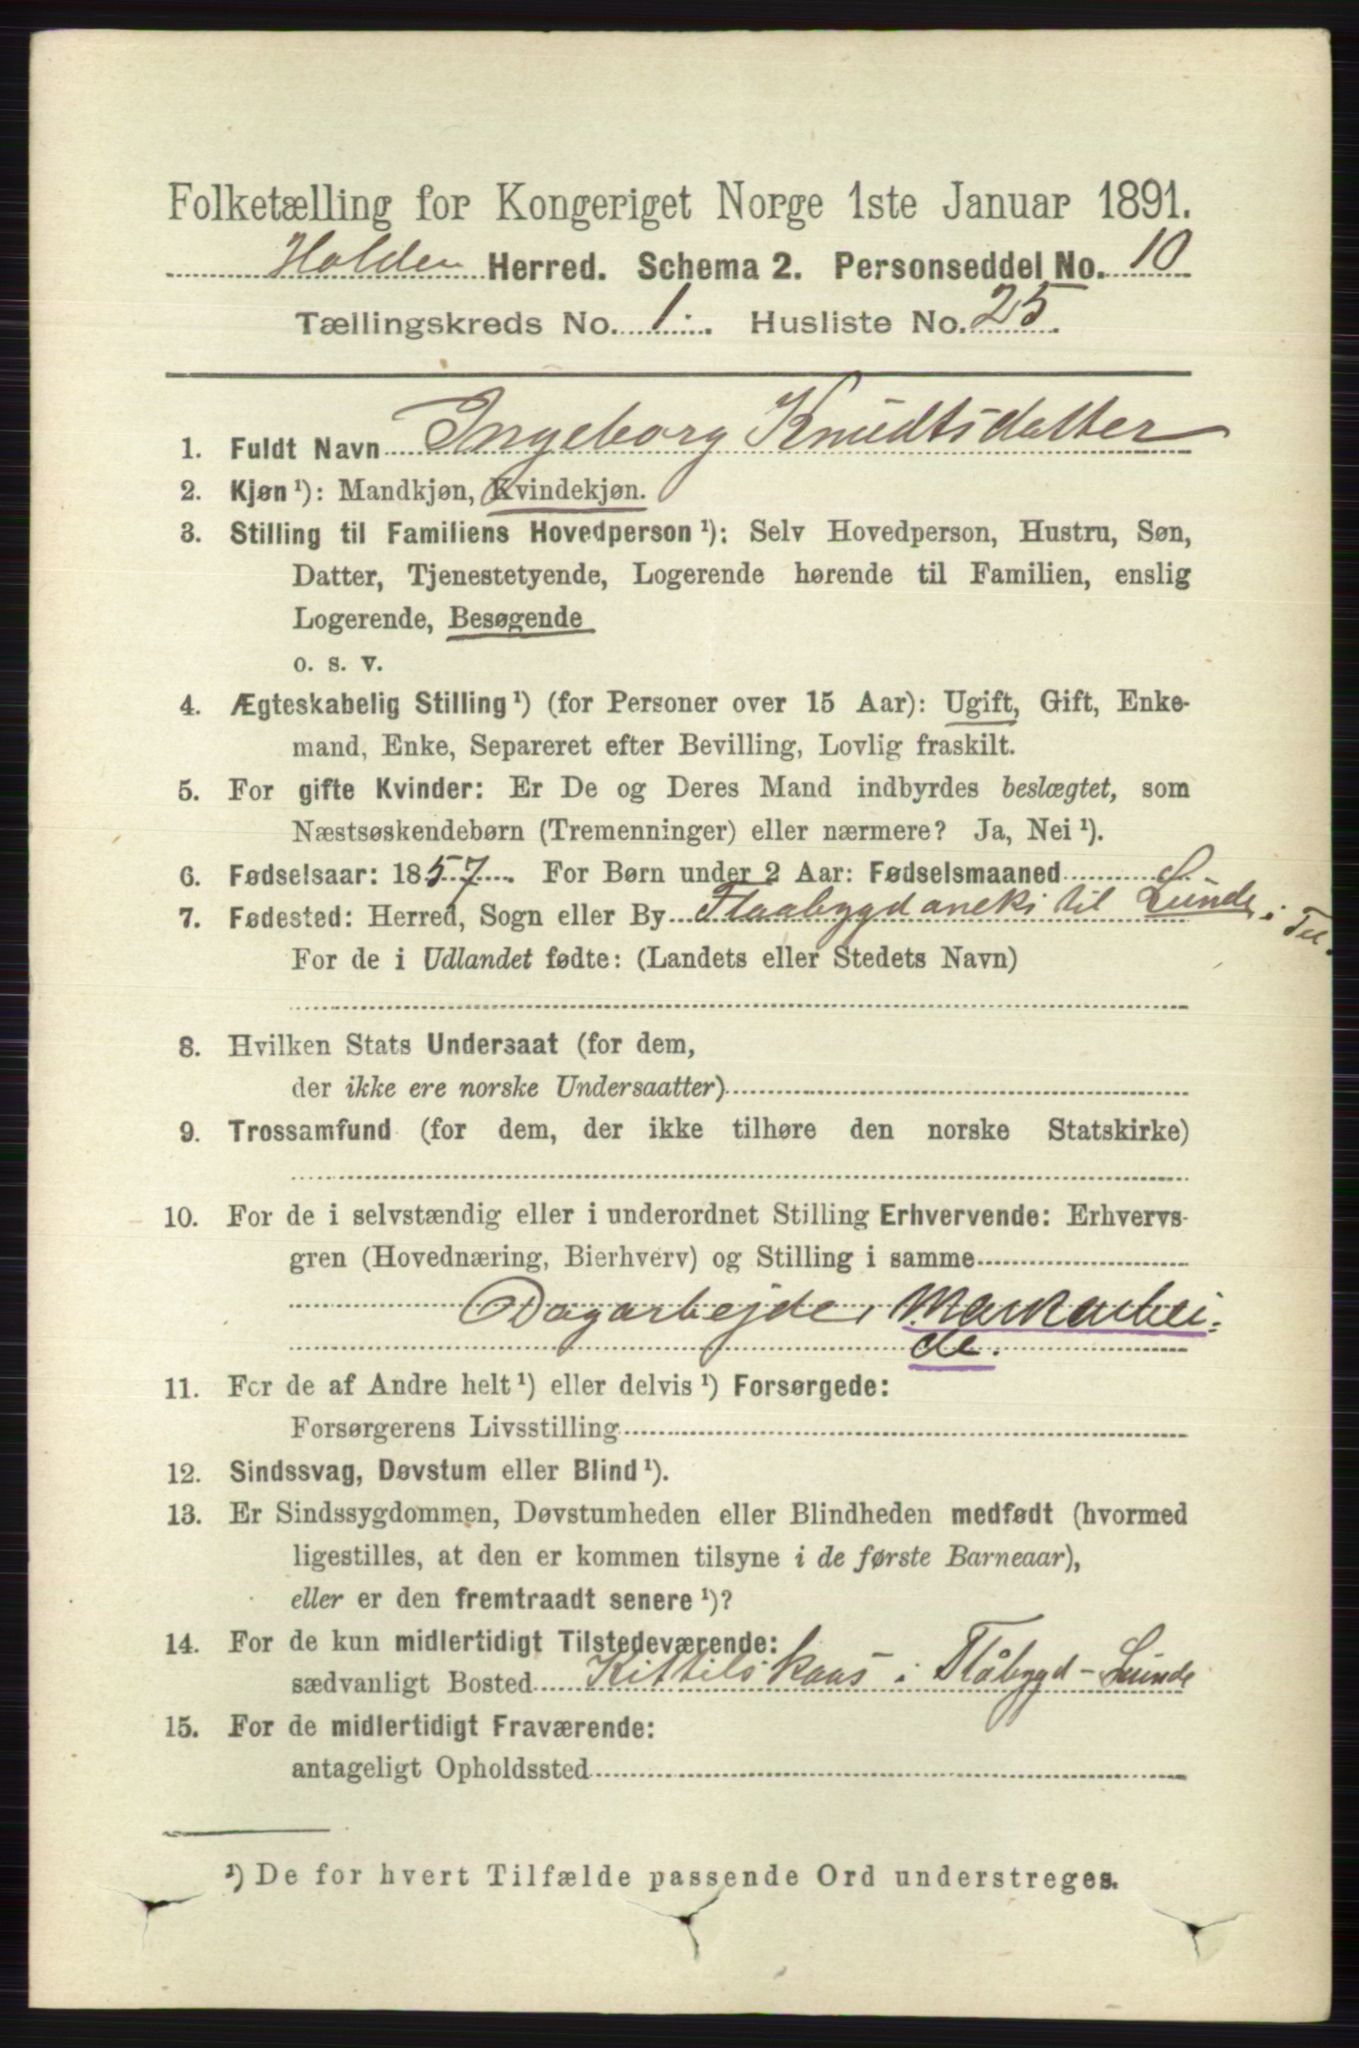 Folketælling for Kongeriget Norge 1ste Januar 1891.
Holden Herred. Schema 2. Personseddel No. 10
Tællingskreds No. 1. Husliste No. 25.
1. Fuldt Navn Ingeborg Knudtsdatter
2. Kjøn ¹): Mandkjøn, Kvindekjøn.
3. Stilling til Familiens Hovedperson ¹): Selv Hovedperson, Hustru, Søn,
Datter, Tjenestetyende, Logerende hørende til Familien, enslig
Logerende, Besøgende
o. s. v.
4. Ægteskabelig Stilling ¹) (for Personer over 15 Aar): Ugift, Gift, Enke-
mand, Enke, Separeret efter Bevilling, Lovlig fraskilt.
5. For gifte Kvinder: Er De og Deres Mand indbyrdes beslægtet, som
Næstsøskendebørn (Tremenninger) eller nærmere? Ja, Nei ¹).
6. Fødselsaar: 1857. For Børn under 2 Aar: Fødselsmaaned
7. Fødested: Herred, Sogn eller By Flaabygd aneks til Lunde i Tel.
For de i Udlandet fødte: (Landets eller Stedets Navn)
8. Hvilken Stats Undersaat (for dem,
der ikke ere norske Undersaatter)
9. Trossamfund (for dem, der ikke tilhøre den norske Statskirke)
10. For de i selvstændig eller i underordnet Stilling Erhvervende: Erhvervs-
gren (Hovednæring, Bierhverv) og Stilling i samme
Dagarbejde, Markarbei-
de.
11. For de af Andre helt ¹) eller delvis ¹) Forsørgede:
Forsørgerens Livsstilling
12. Sindssvag, Døvstum eller Blind ¹).
13. Er Sindssygdommen, Døvstumheden eller Blindheden medfødt (hvormed
ligestilles, at den er kommen tilsyne i de første Barneaar),
eller er den fremtraadt senere ¹)?
14. For de kun midlertidigt Tilstedeværende:
sædvanligt Bosted Kittilskaas i Flåbygd - Lunde
15. For de midlertidigt Fraværende:
antageligt Opholdssted
¹) De for hvert Tilfælde passende Ord understreges.